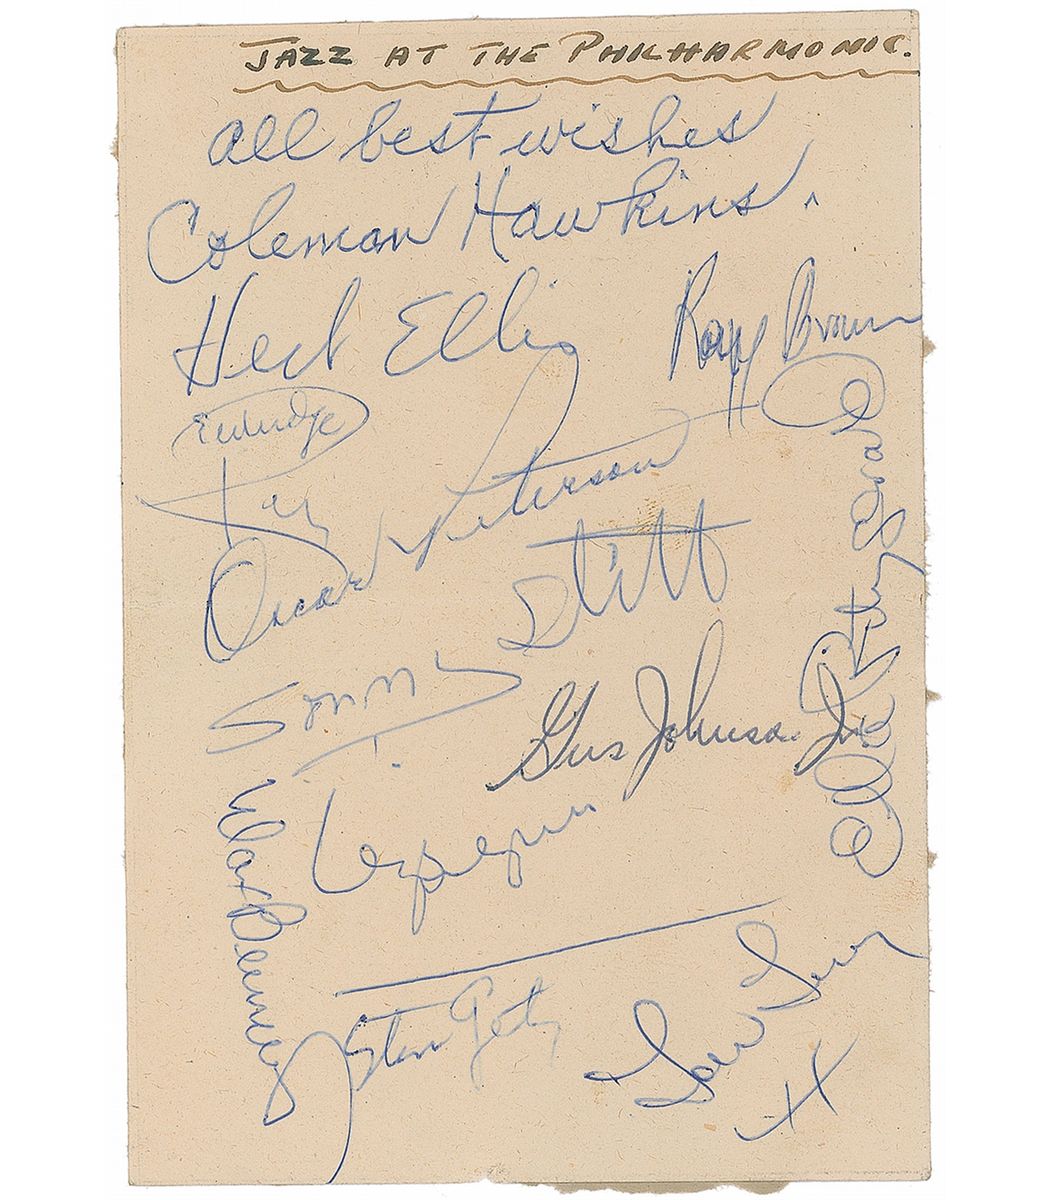 JAZZ AT THE PHILHARMONIC.
All best wishes
Coleman Hawkins.
Herb Ellis
Ray Brown
Eldridge
Roy
Oscar Peterson
Stitt
Sonny
Gus Johnson Jr
Ella Fitzgerald
Dizzy
Max Bennett
Stan Getz
Lou Levy